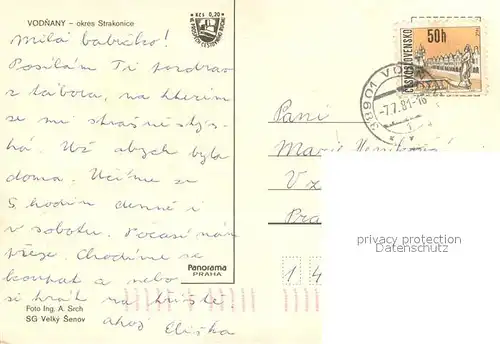 VODŇANY – okres Strakonice
Kčs 0,30
Milá babičko!
Posílám Ti pozdrav
z tábora, na kterém
se mi strašně stýs-
ká. Už abych byla
doma. Učíme se
5 hodin denně i
v sobotu. Počasí nám
přeje. Chodíme se
koupat a nebo
si hrát na hřiště.
ahoj Eliška
Panorama
PRAHA
Foto Ing. A. Srch
SG Velký Šenov
ČESKOSLOVENSKO
50h
TELČ
38901 VOD
-7.7.81-16
Paní
Marie
V
Pra
1 4
privacy protection
watermark